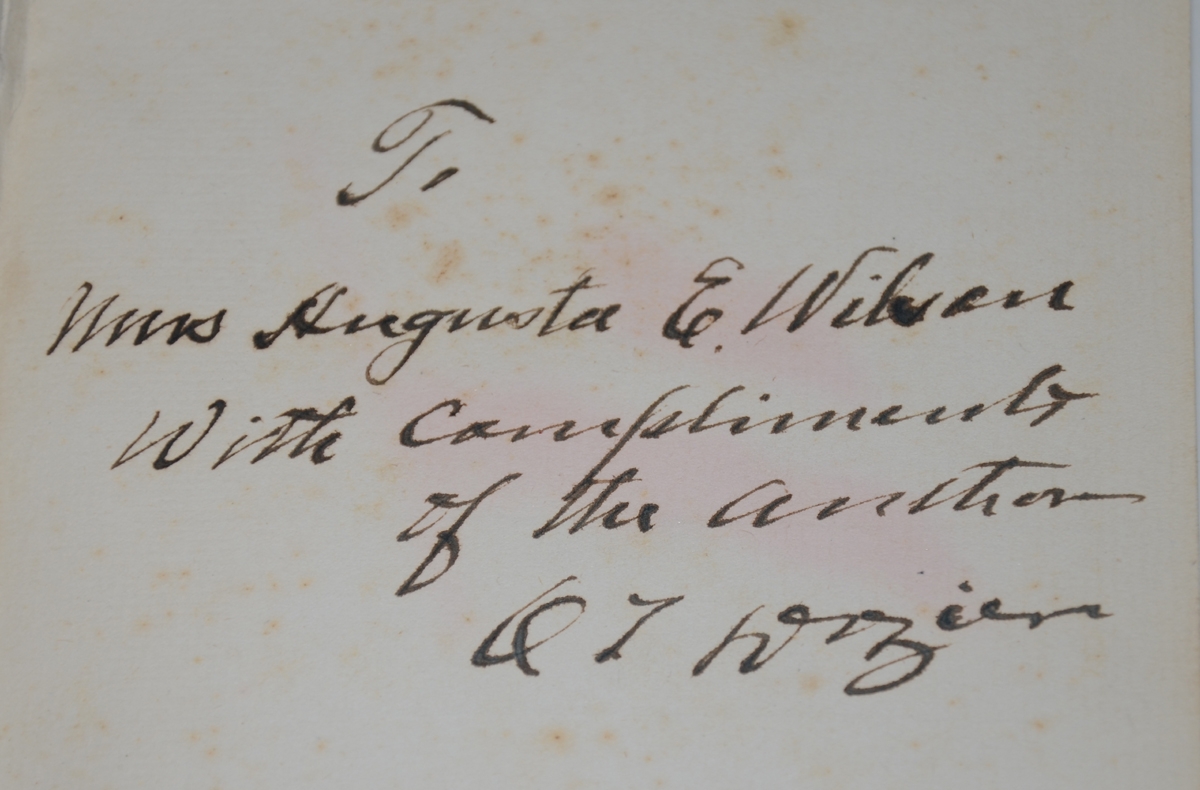 To
Mrs Augusta E. Wilson
With Compliments
of the author
O T Dozier